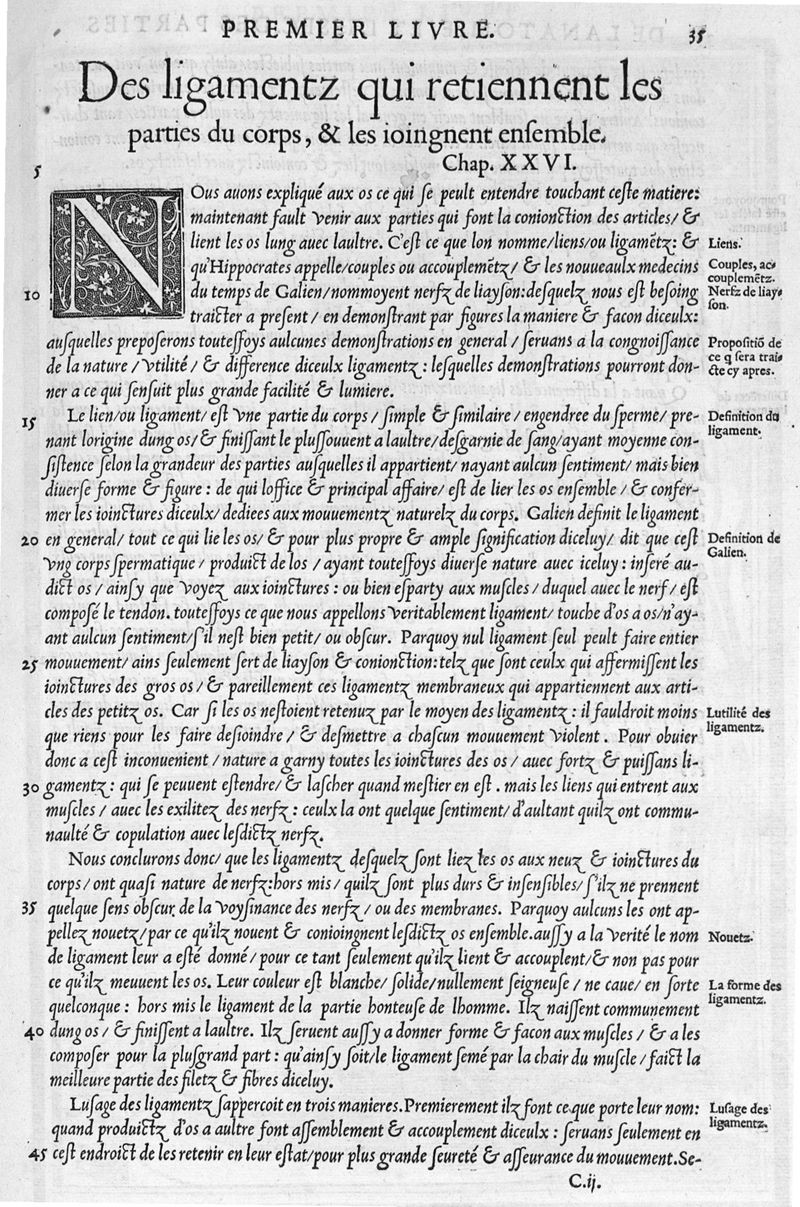 PREMIER LIVRE. 35
Des ligamentz qui retiennent les
parties du corps, & les ioingnent ensemble.
5 Chap. XXVI.
NOus auons expliqué aux os ce qui se peult entendre touchant ceste matiere:
maintenant fault venir aux parties qui font la conionction des articles/ &
lient les os lung auec laultre. C'est ce que lon nomme/liens/ou ligamẽtz: & Liens.
qu'Hippocrates appelle/couples ou accouplemẽtz/ & les nouueaulx medecins Couples, ac-
couplemẽtz.
10 du temps de Galien/nommoyent nerfz de liayson: desquelz nous est besoing Nerfz de liay-
son.
traicter a present/ en demonstrant par figures la maniere & facon diceulx:
ausquelles preposerons toutessoys aulcunes demonstrations en general / seruans a la congnoissance Propositiõ de
de la nature / vtilité / & difference diceulx ligamentz : lesquelles demonstrations pourront don- ce q sera trai-
cte cy apres.
ner a ce qui sensuit plus grande facilité & lumiere.
15 Le lien/ou ligament/ est vne partie du corps / simple & similaire / engendree du sperme/ pre- Definition du
nant lorigine dung os/ & finissant le plussouuent a laultre/desgarnie de sang/ayant moyenne con- ligament.
sistence selon la grandeur des parties ausquelles il appartient/ nayant aulcun sentiment/ mais bien
diuerse forme & figure : de qui loffice & principal affaire/ est de lier les os ensemble / & confer-
mer les ioinctures diceulx/ dediees aux mouuementz naturelz du corps. Galien definit le ligament
20 en general/ tout ce qui lie les os/ & pour plus propre & ample signification diceluy/ dit que cest Definition de
Galien.
vng corps spermatique / produict de los / ayant toutessoys diuerse nature auec iceluy : inseré au-
dict os / ainsy que voyez aux ioinctures : ou bien esparty aux muscles / duquel auec le nerf / est
composé le tendon. toutessoys ce que nous appellons veritablement ligament/ touche d'os a os/n'ay-
ant aulcun sentiment/s'il nest bien petit/ ou obscur. Parquoy nul ligament seul peult faire entier
25 mouuement/ ains seulement sert de liayson & conionction: telz que sont ceulx qui affermissent les
ioinctures des gros os/ & pareillement ces ligamentz membraneux qui appartiennent aux arti-
cles des petitz os. Car si les os nestoient retenuz par le moyen des ligamentz : il fauldroit moins Lutilité des
que riens pour les faire desioindre / & desmettre a chascun mouuement violent. Pour obuier ligamentz.
donc a cest inconuenient / nature a garny toutes les ioinctures des os / auec fortz & puissans li-
30 gamentz : qui se peuuent estendre/ & lascher quand mestier en est . mais les liens qui entrent aux
muscles / auec les exilitez des nerfz : ceulx la ont quelque sentiment/ d'aultant quilz ont commu-
naulté & copulation auec lesdictz nerfz.
Nous conclurons donc/ que les ligamentz desquelz sont liez les os aux neuz & ioinctures du
corps/ ont quasi nature de nerfz: hors mis / quilz sont plus durs & insensibles/ s'ilz ne prennent
35 quelque sens obscur de la voysinance des nerfz / ou des membranes. Parquoy aulcuns les ont ap-
pellez nouetz/par ce qu'ilz nouent & conioingnent lesdictz os ensemble.aussy a la verité le nom Nouetz.
de ligament leur a esté donné/ pour ce tant seulement qu'ilz lient & accouplent/& non pas pour
ce qu'ilz meuuent les os. Leur couleur est blanche/ solide/nullement seigneuse / ne caue/ en sorte La forme des
quelconque : hors mis le ligament de la partie honteuse de lhomme. Ilz naissent communement ligamentz.
40 dung os / & finissent a laultre. Ilz seruent aussy a donner forme & facon aux muscles / & a les
composer pour la plusgrand part : qu'ainsy soit/le ligament semé par la chair du muscle / faict la
meilleure partie des filetz & fibres diceluy.
Lusage des ligamentz sappercoit en trois manieres. Premierement ilz font ce que porte leur nom: Lusage des
quand produictz d'os a aultre font assemblement & accouplement diceulx : seruans seulement en ligamentz.
45 cest endroict de les retenir en leur estat/pour plus grande seureté & asseurance du mouuement.Se-
C.ij.